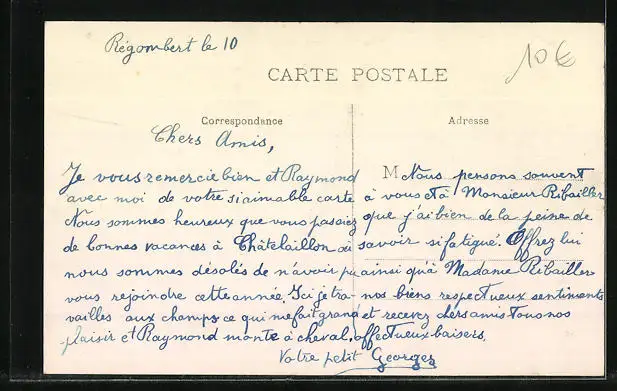 Régombert le 10
10€
CARTE POSTALE
Correspondance
Adresse
Chers Amis,
Je vous remercie bien et Raymond
avec moi de votre si aimable carte
Nous sommes heureux que vous passiez
de bonnes vacances à Châtelaillon où
nous sommes désolés de n'avoir pu
vous rejoindre cette année. Ici je tra-
vailles aux champs ce qui me fait grand
plaisir et Raymond monte à cheval.
M Nous pensons souvent
à vous et à Monsieur Ribailler
que j'ai bien de la peine de
savoir si fatigué. Offrez lui
ainsi qu'à Madame Ribailler
nos biens respectueux sentiments
et recevez chers amis tous nos
affectueux baisers.
Votre petit Georges